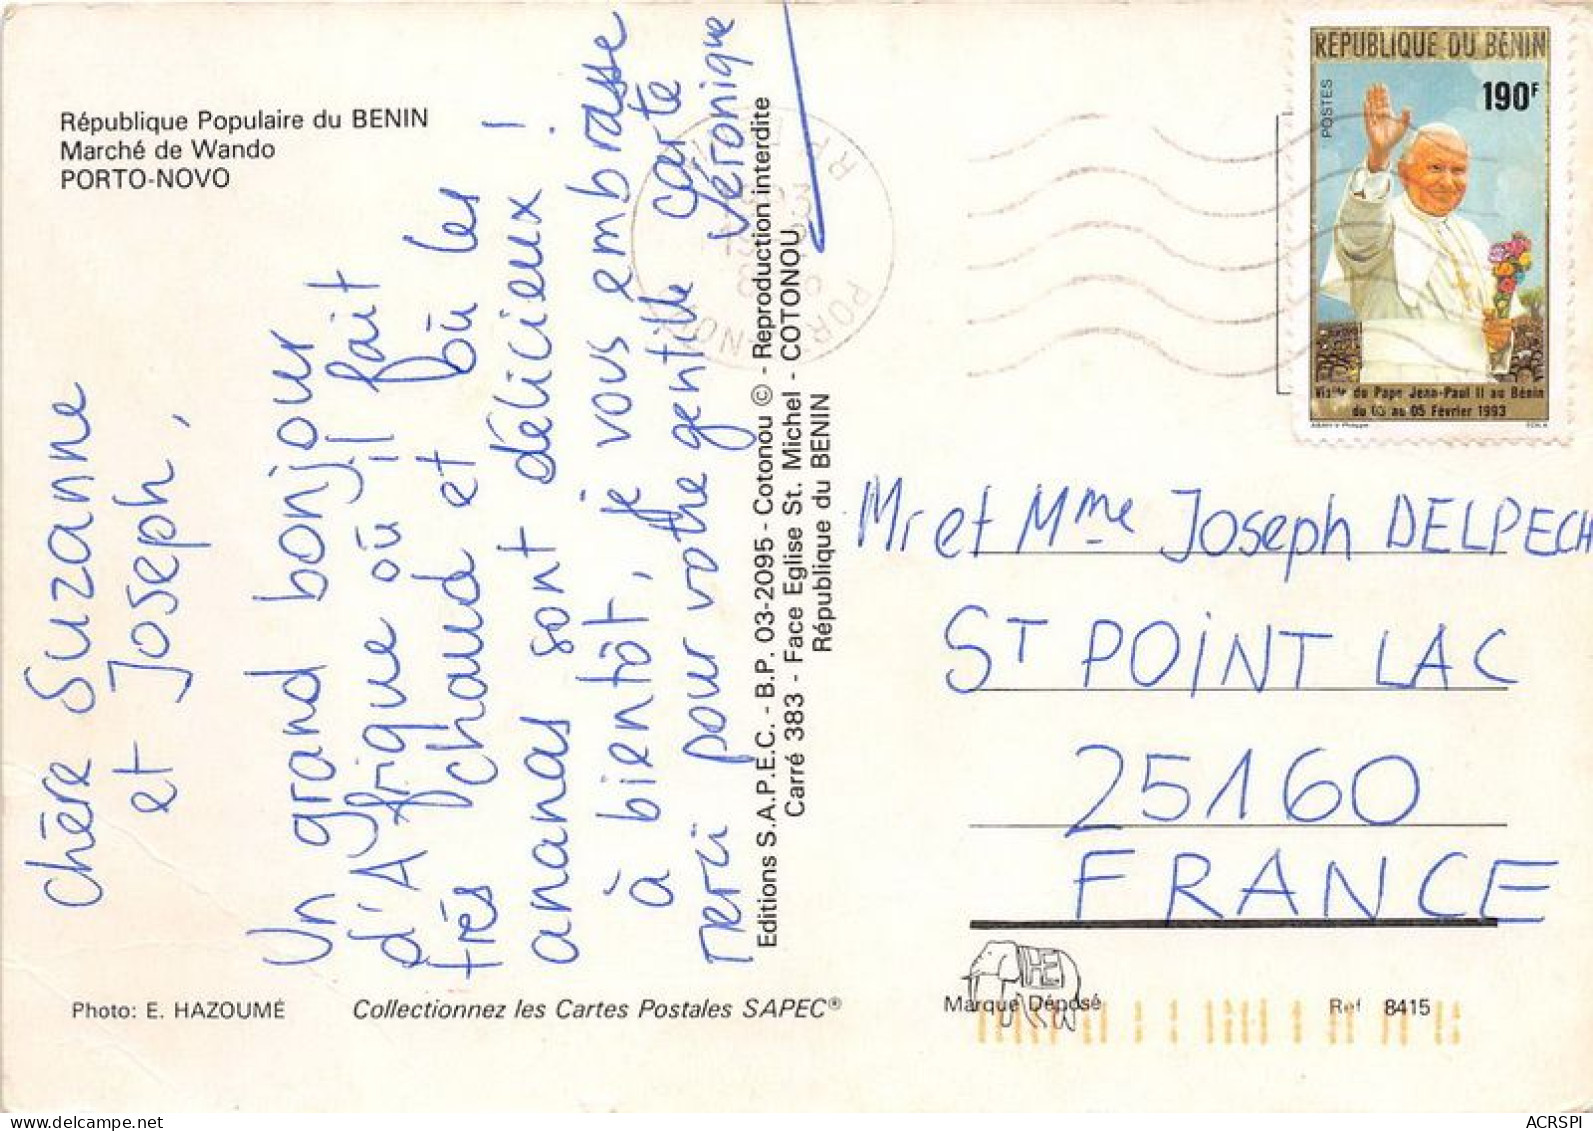 République Populaire du BENIN
Marché de Wando
PORTO-NOVO
Chère Suzanne
et Joseph,
Un grand bonjour
d'Afrique où il fait
très chaud et où les
ananas sont délicieux !
à bientôt, je vous embrasse
Merci pour votre gentille carte
Véronique
Editions S.A.P.E.C. - B.P. 03-2095 - Cotonou © - Reproduction interdite
Carré 383 - Face Eglise St. Michel - COTONOU
République du BENIN
REPUBLIQUE DU BENIN
POSTES
190F
Visite du Pape Jena-Paul II au Bénin
du 03 au 05 Février 1993
Mr et Mme Joseph DELPECH
ST POINT LAC
25160
FRANCE
Photo: E. HAZOUMÉ
Collectionnez les Cartes Postales SAPEC®
Marque Déposé
Ref 8415
ACRSPI